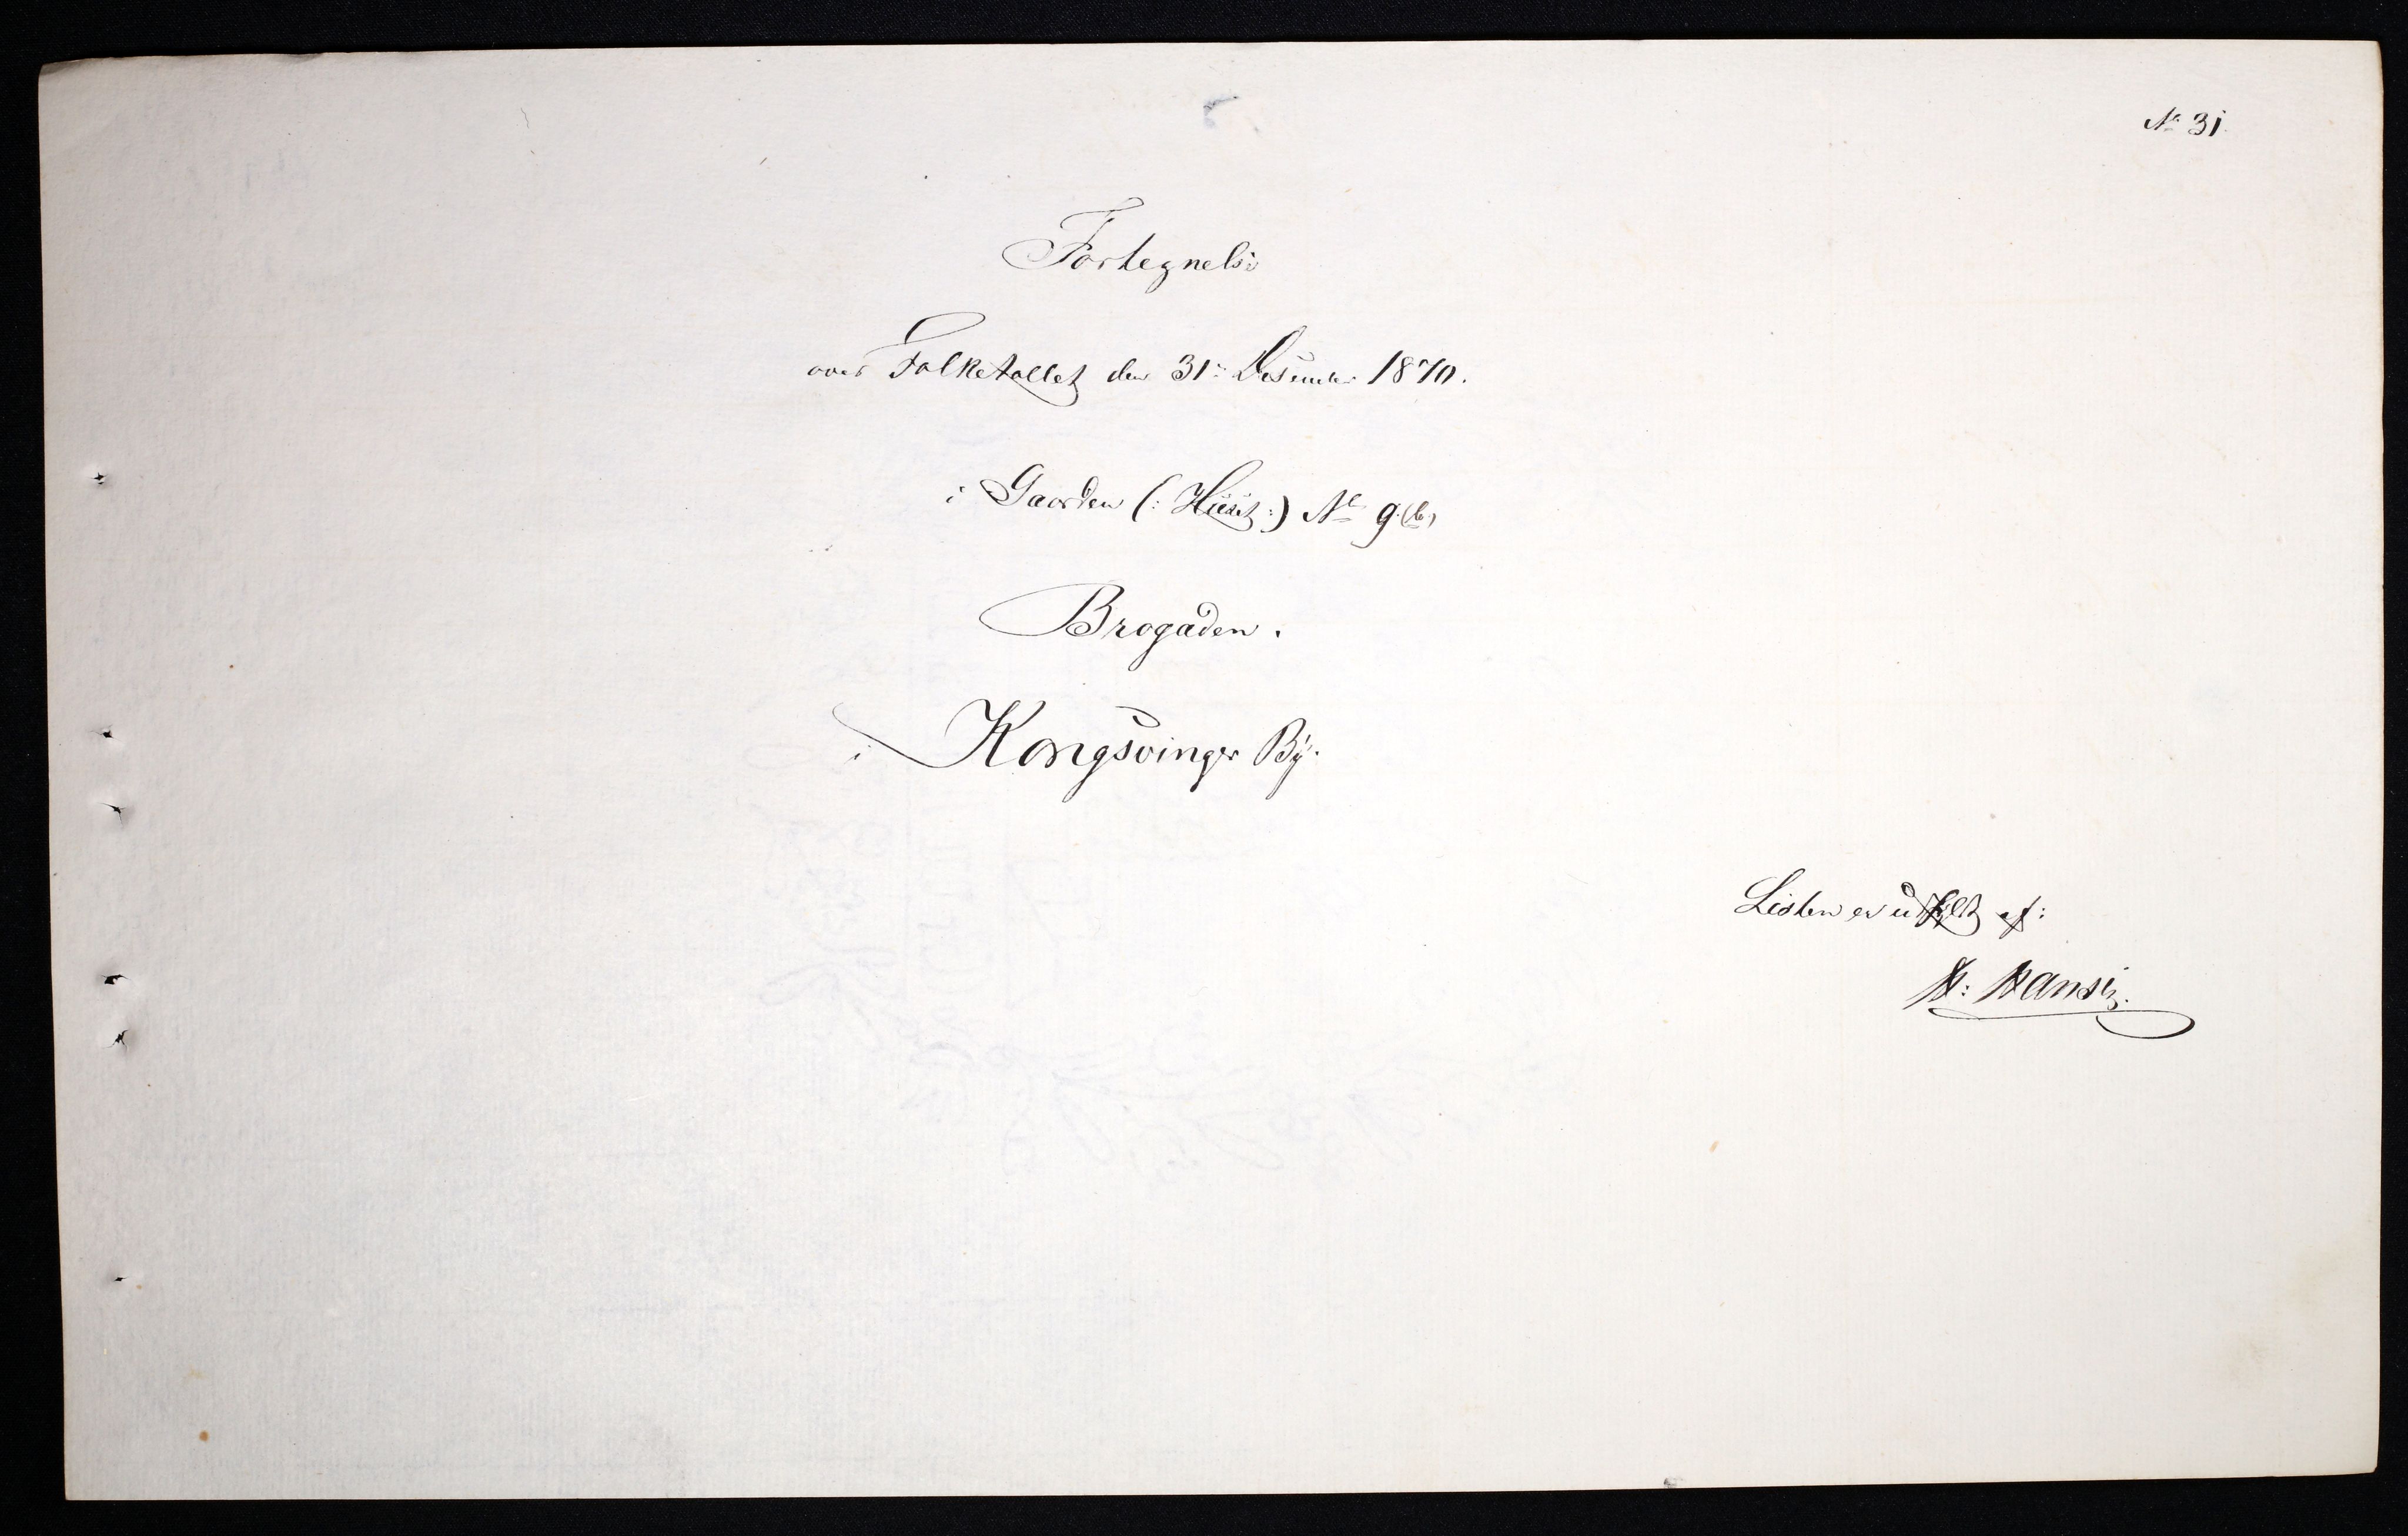 No 31.
Fortegnelse
over Folketallet den 31: Desember 1870.
i Gaarden (: Huset :) No 9 (b)
Brogaden.
i Kongsvinger By.
Listen er udfyldt af:
H: Hansen.